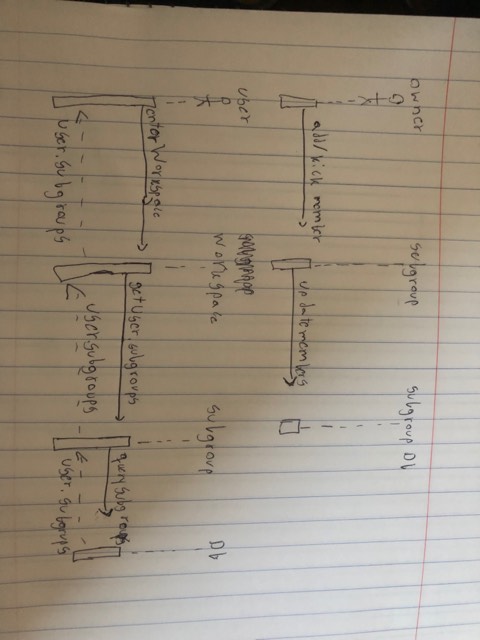 owner
subgroup
subgroup Db
add/kick member
updatemembers
user
workspace
subgroup
Db
enterWorkspace
getUser.subgroups
querysubgroups
user.subgroups
user.subgroups
user.subgroups